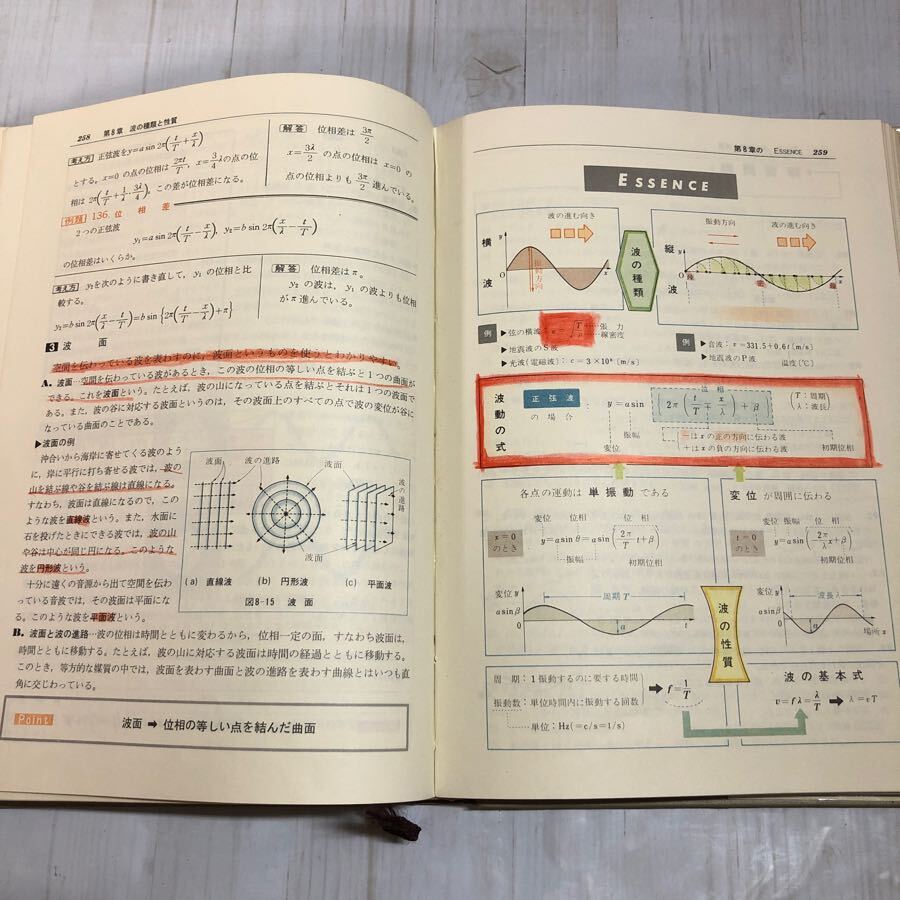 258 第8章 波の種類と性質
考え方 正弦波をy=a sin 2π(t/T+x/λ)
とする。x=0の点の位相は2πt/T, x=3/4λの点の位
相は 2π(t/T+1/λ・3λ/4)。この差が位相差になる。
解答 位相差は 3π/2
x=3λ/2 の点の位相は x=0 の
点の位相よりも 3π/2 進んでいる。
例題 136. 位相差
2つの正弦波
y₁=a sin 2π(t/T−x/λ), y₂=b sin 2π(x/λ−t/T)
の位相差はいくらか。
考え方 y₂を次のように書き直して, y₁ の位相と比
較する。
y₂=b sin 2π(x/λ−t/T)=b sin{2π(t/T−x/λ)+π}
解答 位相差は π。
y₂ の波は, y₁ の波よりも位相
が π 進んでいる。
3 波面
空間を伝わっている波を表わすのに, 波面というものを使うとわかりやすい。
A. 波面…空間を伝わっている波があるとき, この波の位相の等しい点を結ぶと1つの曲面が
できる。これを波面という。たとえば, 波の山になっている点を結ぶとそれは1つの波面で
ある。また, 波の谷に対応する波面というのは, その波面上のすべての点で波の変位が谷に
なっている曲面のことである。
▶波面の例
沖合いから海岸に寄せてくる波のよう
に, 岸に平行に打ち寄せる波では, 波の
山を結ぶ線や谷を結ぶ線は直線になる。
すなわち, 波面は直線になるので, この
ような波を直線波という。また, 水面に
石を投げたときにできる波では, 波の山
や谷は中心が同じ円になる。このような
波を円形波という。
十分に遠くの音源から出て空間を伝わ
っている音波では, その波面は平面にな
る。このような波を平面波という。
波面 波の進路 波面
波の進路
波面
(a) 直線波 (b) 円形波 (c) 平面波
図8-15 波面
B. 波面と波の進路…波の位相は時間とともに変わるから, 位相一定の面, すなわち波面は,
時間とともに移動する。たとえば, 波の山に対応する波面は時間の経過とともに移動する。
このとき, 等方的な媒質の中では, 波面を表わす曲面と波の進路を表わす曲線とはいつも直
角に交じわっている。
Point 波面 ➡ 位相の等しい点を結んだ曲面
第8章の ESSENCE 259
ESSENCE
横波
波の進む向き
y
O
x
振動方向
波の種類
縦波
振動方向
波の進む向き
y
O
x
例 ▶弦の横波 T……張力
……線密度
▶地震波のS波
▶光波(電磁波): c=3×10⁸〔m/s〕
例 ▶音波: v=331.5+0.6t〔m/s〕
▶地震波のP波 温度〔℃〕
波動の式
正弦波 の場合 : y=a sin{2π(t/T∓x/λ)+β}
位相
(T:周期
λ:波長)
振幅
変位
−はxの正の方向に伝わる波
+はxの負の方向に伝わる波
初期位相
各点の運動は 単振動 である
x=0 のとき
変位 位相 位相
y=a sinθ=a sin(2π/T t+β)
振幅 初期位相
変位 y
a sinβ
周期 T
a
t
変位 が周囲に伝わる
t=0 のとき
変位 振幅 位相
y=a sin(−2π/λ x+β)
初期位相
変位 y
a sinβ
波長λ
a
場所 x
波の性質
周期:1振動するのに要する時間
振動数:単位時間内に振動する回数
単位:Hz(=c/s=1/s)
➡ f=1/T
波の基本式
v=fλ=λ/T ➡ λ=vT